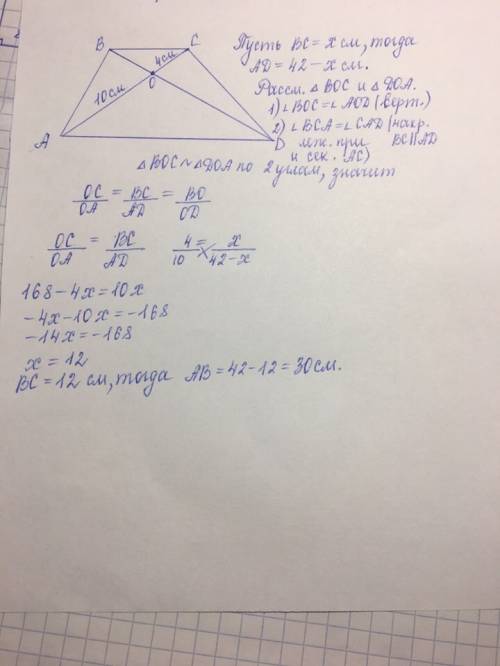 B C
4см
O
10см
A D
Пусть BC = x см, тогда
AD = 42 - x см.
Рассм. △ BOC и △ DOA.
1) ∠BOC = ∠AOD (верт.)
2) ∠BCA = ∠CAD (накр.
леж. при BC||AD
и сек. AC)
△ BOC ~ △ DOA по 2 углам, значит
OC/OA = BC/AD = BO/OD
OC/OA = BC/AD 4/10 = x/42-x
168 - 4x = 10x
-4x - 10x = -168
-14x = -168
x = 12
BC = 12 см, тогда AB = 42 - 12 = 30 см.